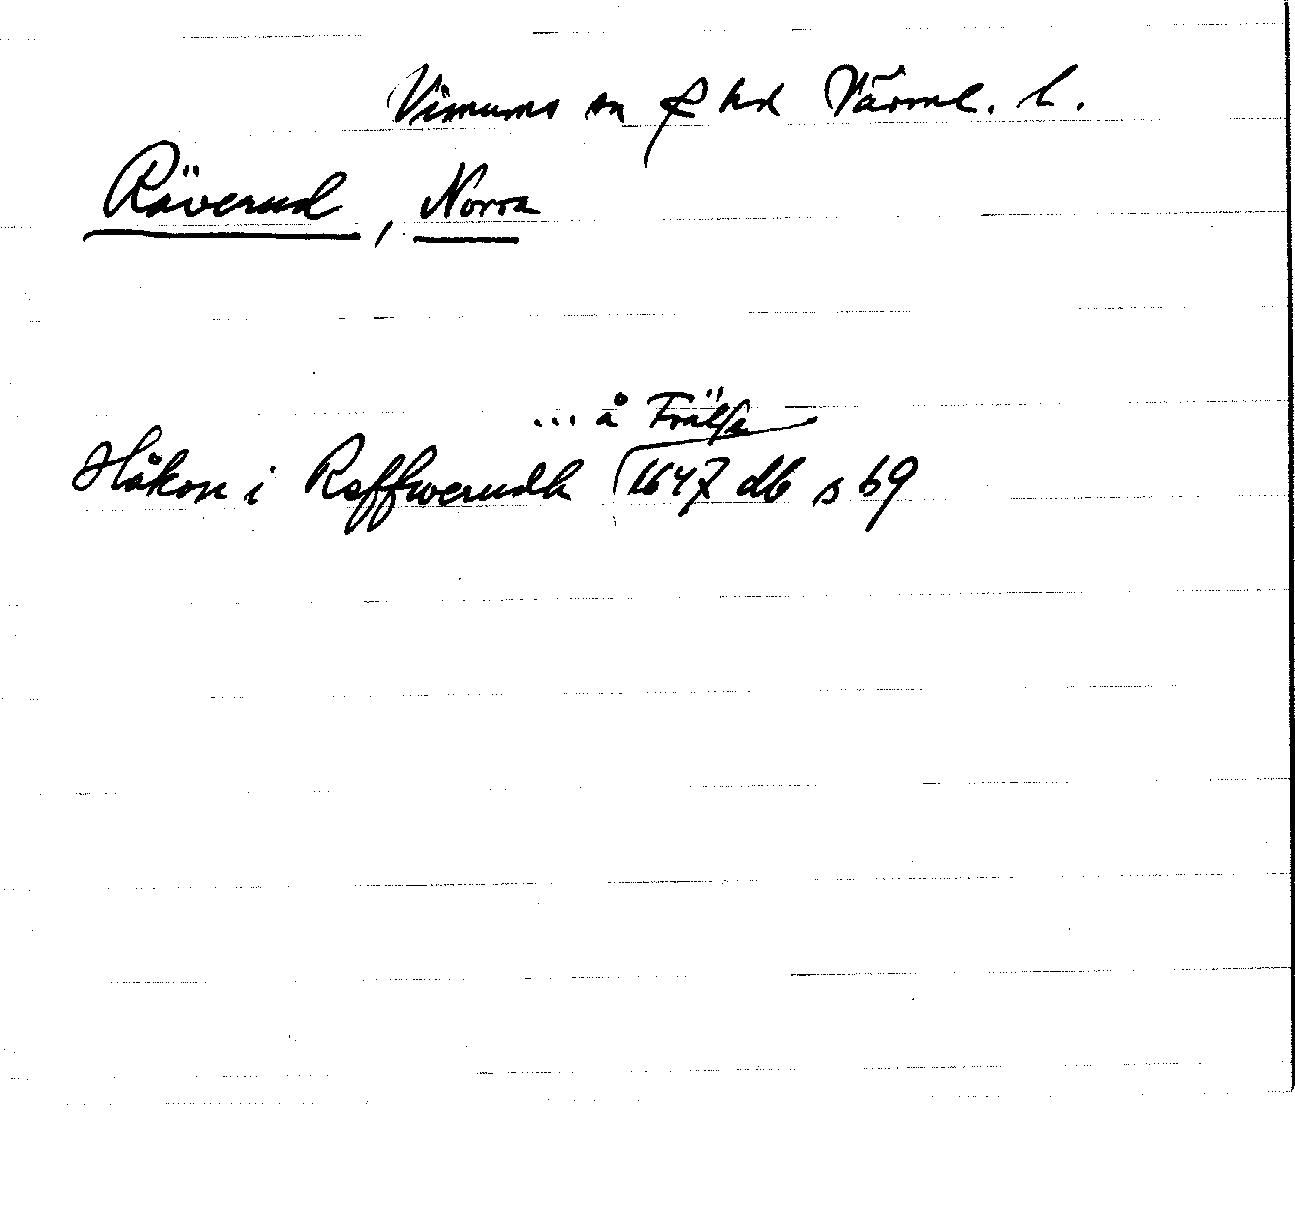 Visnums sn hd Värml. l.
Räverud, Norra
... å Frälse
Håkon i Reffwerudh 1647 db s 69